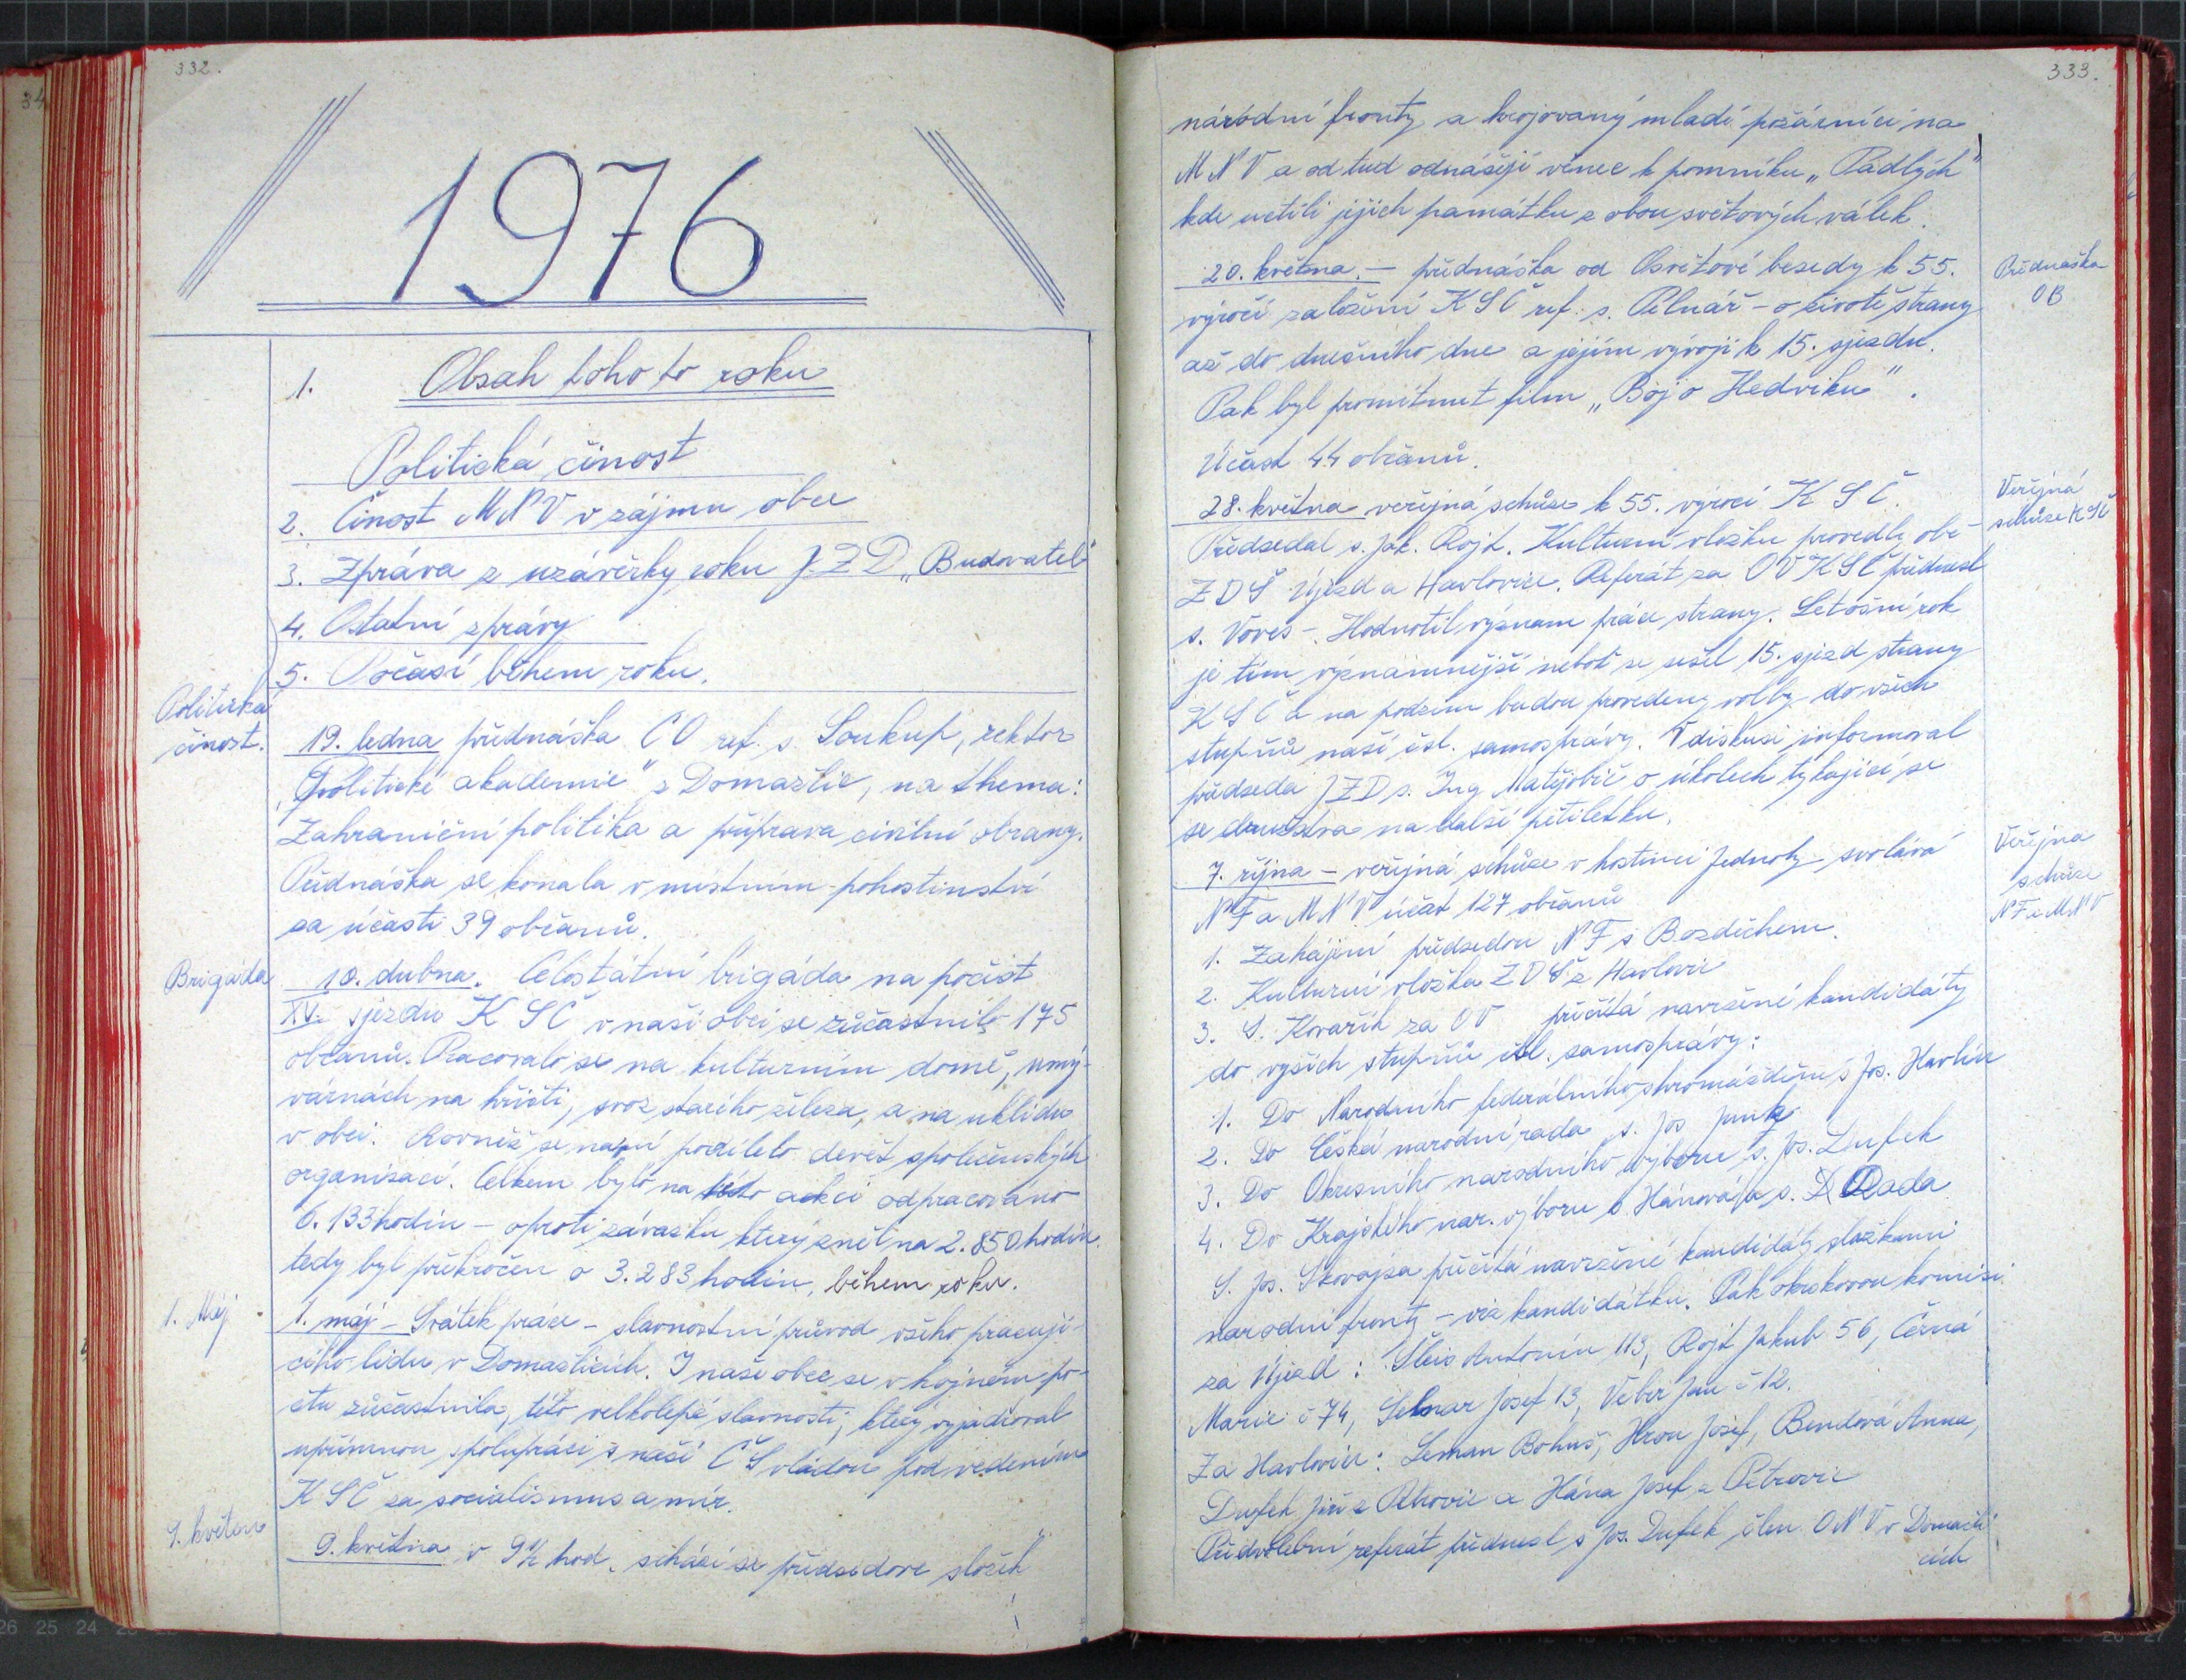 332.
1976
1. Obsah toho to roku
Politická činost
2. Činost MNV v zájmu obce
3. Zpráva z uzávěrky roku JZD „Budovatel"
4. Ostatní zprávy
5. Počasí během roku.
Politická
činost.
19. ledna přednáška CO ref. s. Soukup, rektor
„Politické akademie" z Domažlic, na thema:
Zahraniční politika a příprava civilní obrany.
Přednáška se konala v místnım pohostinství
za účasti 39 občanů.
Brigáda
10. dubna. Celostátní brigáda na počest
XV. sjezdu KSČ v naší obci se zúčastnilo 175
občanů. Pracovalo se na kulturním domě, umý-
várnách na hřišti, svoz starého železa, a na uklidu
v obci. Rovněž se na ní podílelo devět společenských
organisací. Celkem bylo na této akci odpracováno
6.133 hodin – oproti závazku který zněl na 2.850 hodin.
tedy byl překročen o 3.283 hodin, během roku.
1. Máj
1. máj – Svátek práce – slavnostní průvod všeho pracují-
cího lidu v Domažlicích. I naše obec se v hojném po-
čtu zúčastnila, této velkolepé slavnosti, který vyjadřoval
upřímnou spolupráci s naší ČS vládou pod vedením
KSČ za socialismus a mír.
9. květen
9. května v 9½ hod. schází se předsedové složek
333.
národní fronty a krojovaný mladí požárníci na
MNV a od tud odnášejí věnec k pomníku „Padlých"
kde uctili jejich památku z obou světových válek.
20. května. – přednáška od Osvětové besedy k 55.
Přednáška
OB
výročí založení KSČ ref. s. Pelnář – o životě strany
až do dnešního dne a jejím vývoji k 15. sjezdu.
Pak byl promítnut film „Boj o Hedviku".
Účast 44 občanů.
28. května veřejná schůze k 55. výročí KSČ.
Veřejná
schůze KSČ
Předsedal s. Jak. Rojt. Kulturní vložku provedly obě
ZDŠ Újezd a Havlovice. Referát za OV KSČ přednesl
s. Voves – Hodnotil význam práce strany. Letošní rok
je tím významnější neboť se sešel 15. sjezd strany
KSČ a na podzim budou provedeny volby do všech
stupňů naší čsl. samosprávy. V diskusi informoval
předseda JZD s. Ing Matějovič o úkolech tykající se
se družstva na další pětiletku.
7. října – veřejná schůze v hostinci Jednoty svolává
Veřejna
schůze
NF a MNV
NF a MNV účat 127 občanů
1. Zahájení předsedou NF s Bozděchem.
2. Kulturní vložka ZDŠ z Havlovic
3. S. Kovařík za OV přečítá navržené kandidáty
do vyších stupňů čsl. samosprávy:
1. Do Narodního federálního shromáždění s Jos. Havlin
2. Do Česká narodní rada s. Jos Junk
3. Do Okresního narodního výboru s. Jos. Dufek
4. Do Krajského nar. výboru s. Hánová a s. Rada
S. Jos. Skovajsa přečítá navržené kandidáty složkami
narodní fronty – viz kandidátku. Pak okrskovou komisi
za Újezd: Šleis Antonín 113, Rojt Jakub 56, Černá
Marie č 74, Selnar Josef 13, Veber Jan č 12.
Za Havlovice: Leman Bohuš, Hrou Josef, Bendová Anna,
Dufek Jiří z Petrovic a Hána Josef z Petrovic
Předvolební referát přednesl s Jos. Dufek člen ONV v Domažli
cích